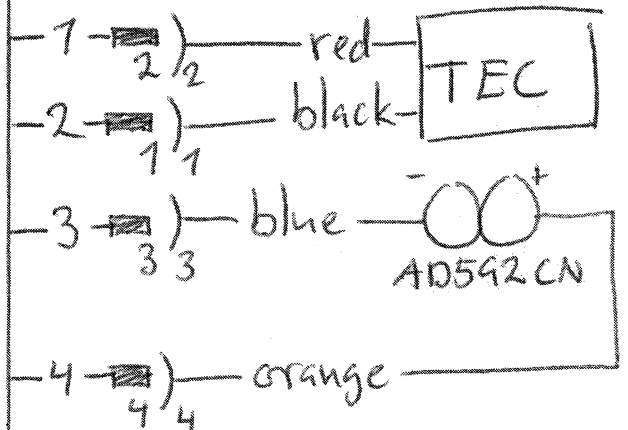 1 2 2 red TEC
2 1 1 black
3 3 3 blue - +
AD592CN
4 4 4 orange